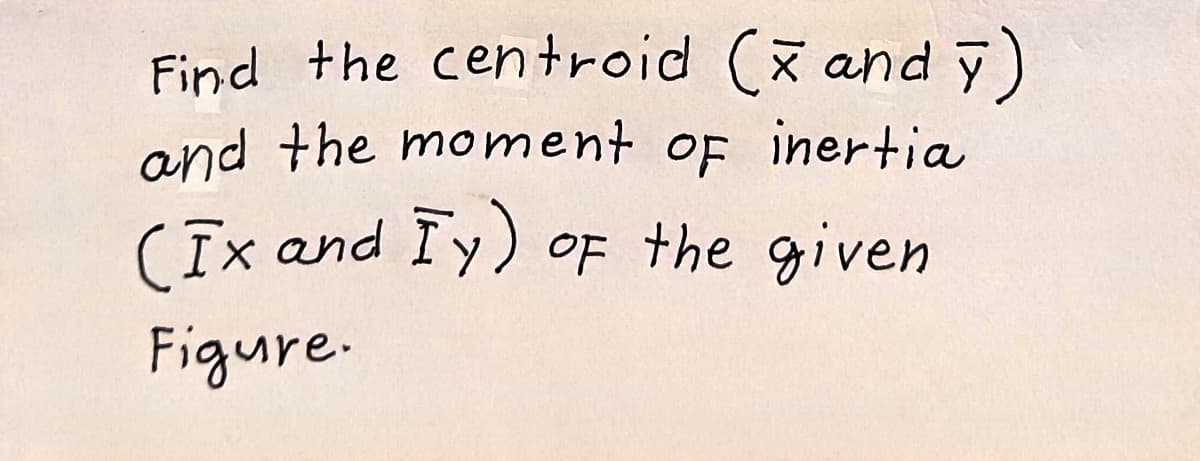 Find the centroid (x̄ and ȳ)
and the moment of inertia
(Īx and Īy) of the given
Figure.